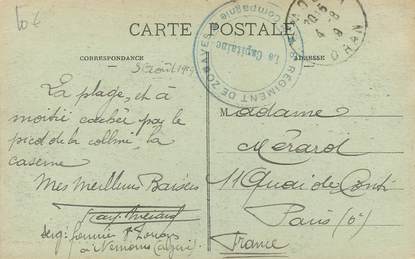 10 €
CARTE POSTALE
CORRESPONDANCE
ADRESSE
RÉGIMENT DE ZOUAVES
Compagnie
Le Capitaine
10-5
4 -8
ORAN
3 Août 19
La plage, et à
moitié cachée par le
pied de la colline, la
caserne
Mes Meilleurs Baisers
Serg: Fourrier Zouaves
à Nemours (Algérie)
Madame
Mérard
11 Quai de Conti
Paris (6e)
France